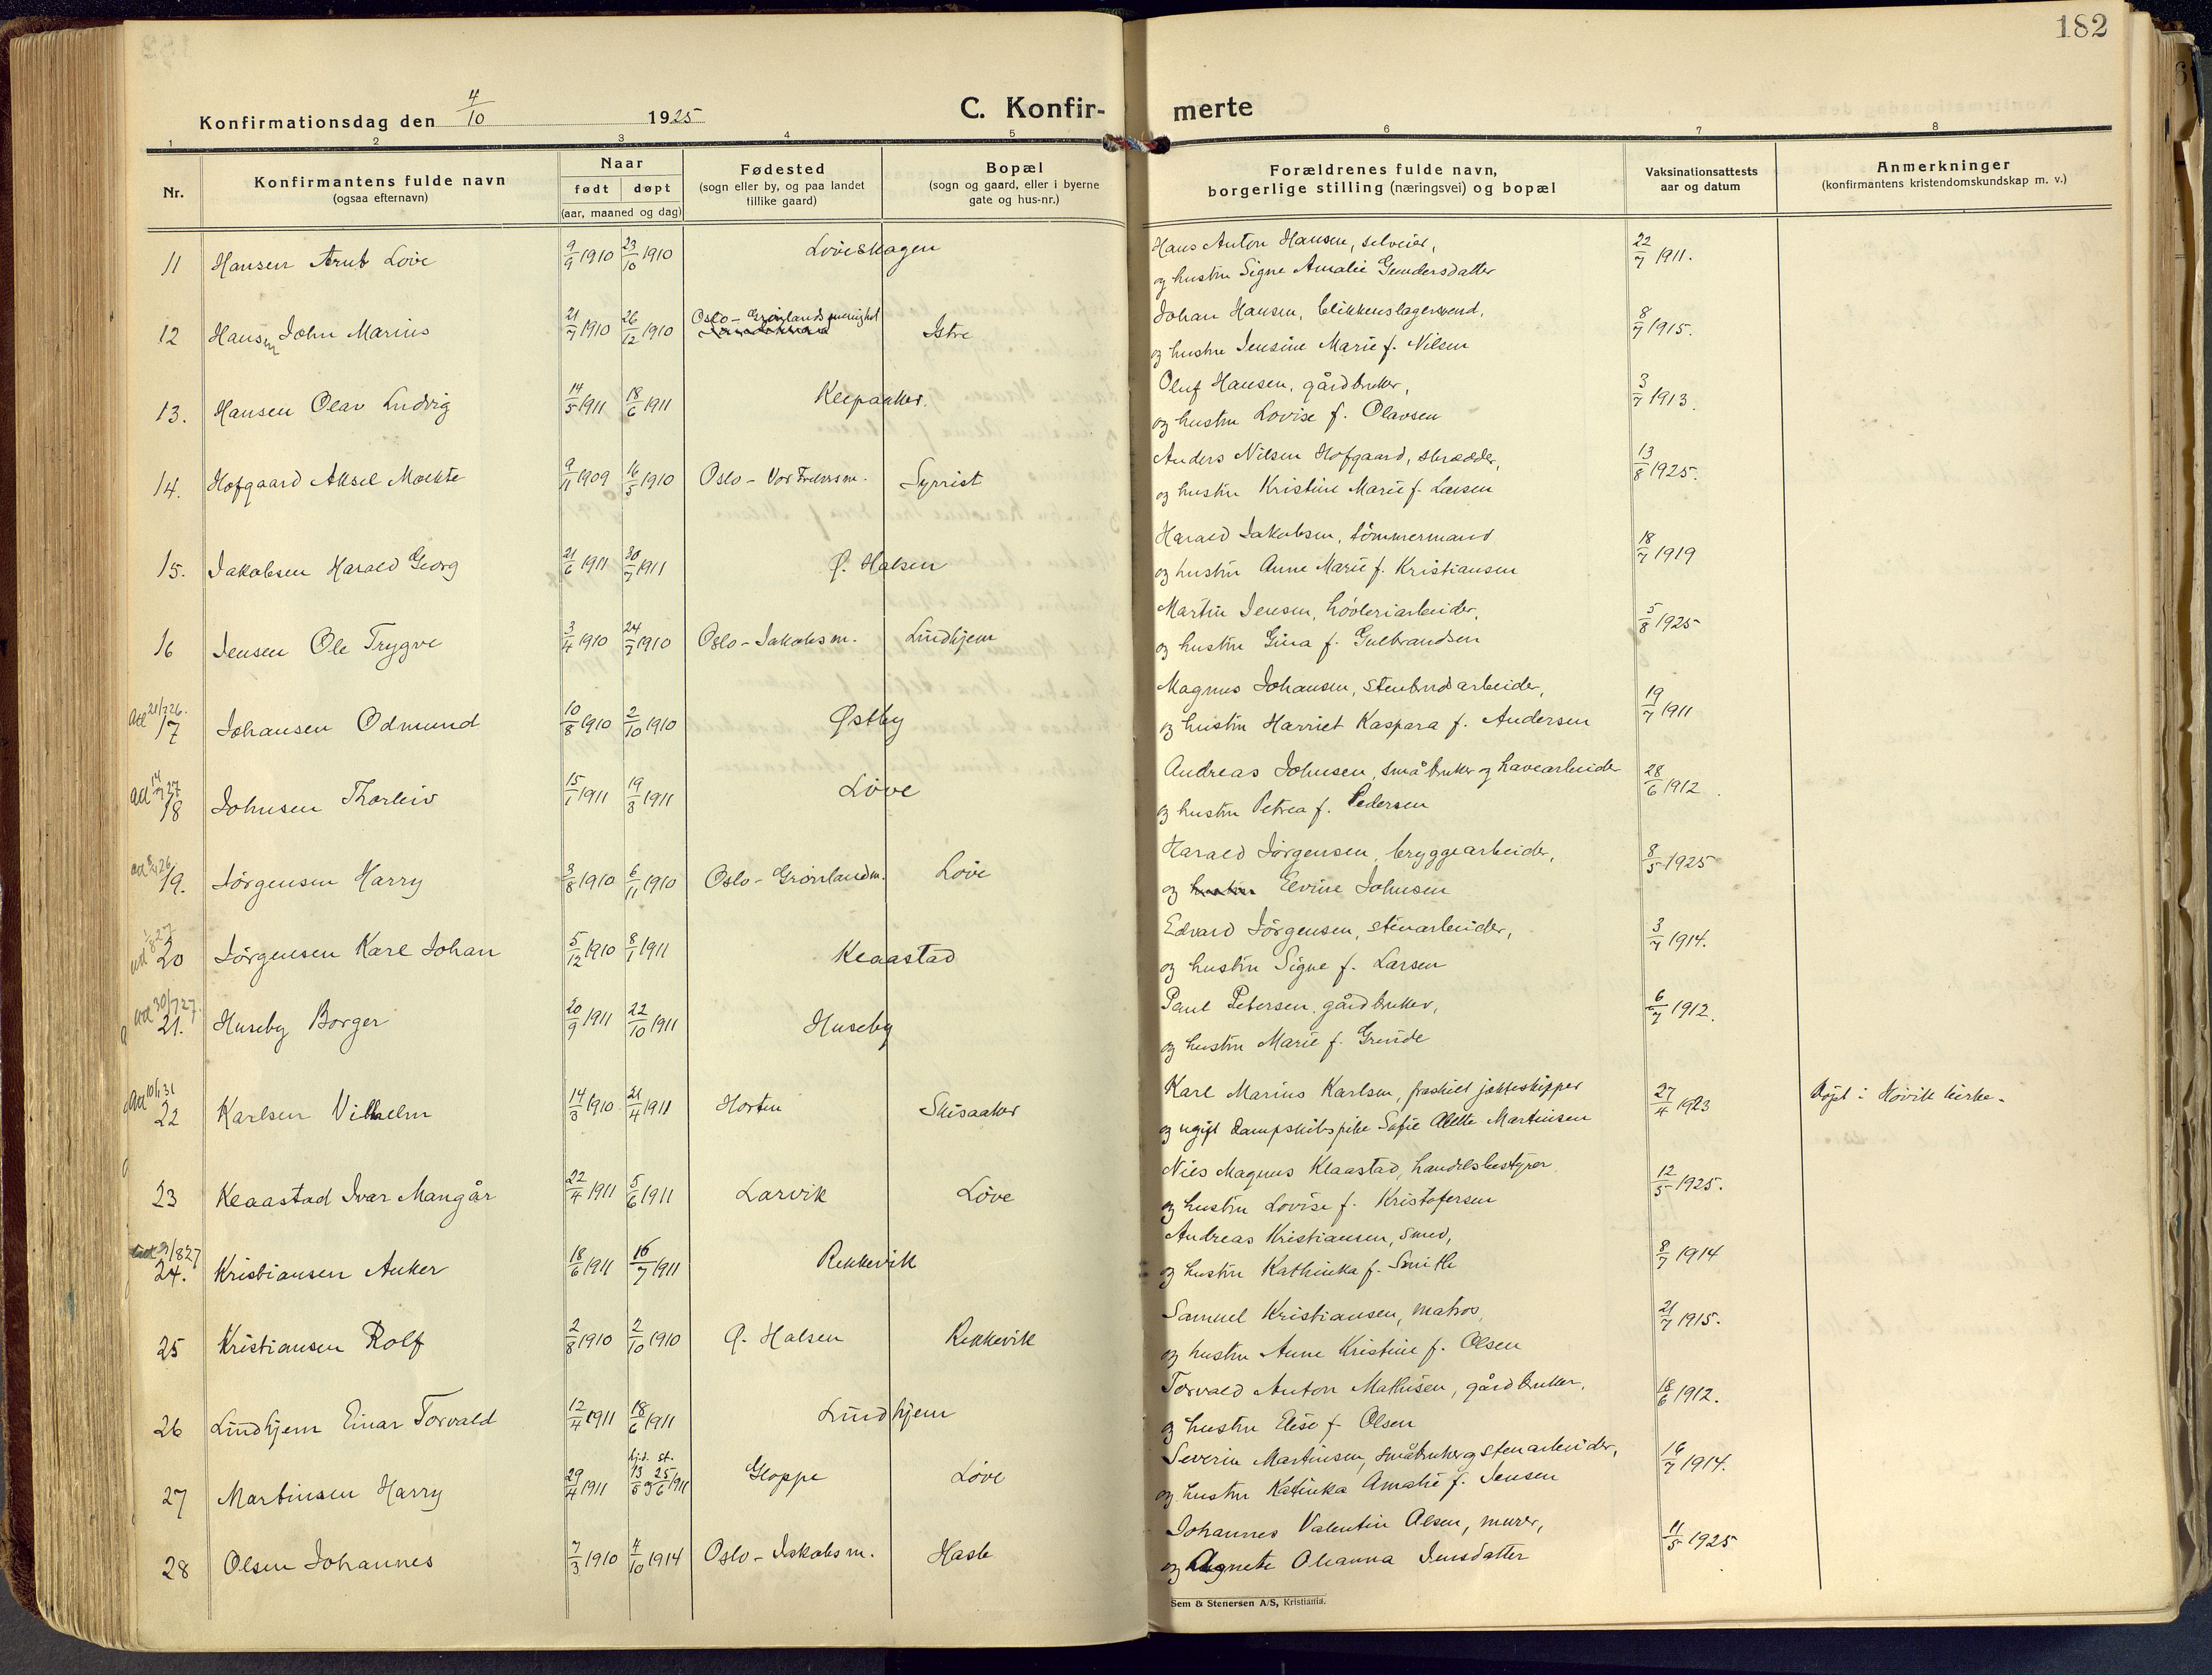 182
Konfirmationsdag den 4/10 1925
C. Konfir-
merte
1 2 3 4 5 6 7 8
Nr.
Konfirmantens fulde navn
(ogsaa efternavn)
Naar
født døpt
(aar, maaned og dag)
Fødested
(sogn eller by, og paa landet
tillike gaard)
Bopæl
(sogn og gaard, eller i byerne
gate og hus-nr.)
Forældrenes fulde navn,
borgerlige stilling (næringsvei) og bopæl
Vaksinationsattests
aar og datum
Anmerkninger
(konfirmantens kristendomskundskap m. v.)
11 Hansen Arnt Löve 9/9 1910 23/10 1910 Löveskagen
Hans Anton Hansen, selveier, 22/7 1911.
og hustru Signe Amalie
12 Hansen John Marius 21/7 1910 26/12 1910 Oslo - Grönlands menighet Istre
Johan Hansen, blikkenslagersvend, 8/7 1915.
og hustru Jensine Marie f. Nilsen
13. Hansen Olav Ludvig 14/5 1911 18/6 1911 Klepaaker.
Oluf Hansen, gårdbruker, 3/7 1913.
og hustru Lovise f. Olavsen
14. Hofgaard Aksel Moltke 9/11 1909 16/5 1910 Oslo - Vor Frelsers m. Syrrist
Anders Nilsen Hofgaard, skrædder, 13/8 1925.
og hustru Kristine Marie f. Larsen
15. Jakobsen Harald Georg 21/6 1911 30/7 1911 Ø. Halsen
Harald Jakobsen, tömmermand 18/7 1919
og hustru Anne Marie f. Kristiansen
16 Jensen Ole Trygve 3/4 1910 24/7 1910 Oslo - Jakobs m. Lindhjem
Martin Jensen, hövleriarbeider, 5/8 1925
og hustru Gina f. Gulbrandsen
att 28/7 26.
17 Johansen Odmund 10/8 1910 2/10 1910 Østby
Magnus Johansen, stenbrudarbeider, 19/7 1911
og hustru Harriet Kaspara f. Andersen
18 Johnsen Thorleiv 15/1 1911 19/3 1911 Löve
Andreas Johnsen, småbruker og havearbeider 28/6 1912.
og hustru Petrea f. Pedersen
19. Jörgensen Harry 3/8 1910 6/11 1910 Oslo - Grönland m. Löve
Harald Jörgensen, bryggearbeider, 8/5 1925
og hustru Elvine Johnsen
20 Jörgensen Karl Johan 5/12 1910 8/1 1911 Klaastad
Edvard Jörgensen, stenarbeider, 3/7 1914.
og hustru Signe f. Larsen
att 30/7 27.
21. Huseby Borger 20/9 1911 22/10 1911 Huseby
Paul Petersen, gårdbruker, 6/7 1912.
og hustru Marie f. Grinde
22 Karlsen Vilhelm 14/3 1910 21/4 1911 Horten Skisaaker
Karl Marius Karlsen, fraskilt jakteskipper 27/4 1923 Døpt i Høvik kirke.
og ugift dampskibspike Sofie Alette Martinsen
23 Klaastad Ivar Mangår 22/4 1911 5/6 1911 Larvik Löve
Nils Magnus Klaastad, handelsbestyrer 12/5 1925.
og hustru Lovise f. Kristofersen
24. Kristiansen Anker 18/6 1911 16/7 1911 Rekkevik
Andreas Kristiansen, smed, 8/7 1914
og hustru Kathinka f. Smith
25 Kristiansen Rolf 2/8 1910 2/10 1910 Ø. Halsen Rekkevik
Samuel Kristiansen, matros, 21/7 1915.
og hustru Anne Kristine f. Olsen
26 Lindhjem Einar Torvald 12/4 1911 18/6 1911 Lindhjem
Torvald Anton Mathisen, gårdbruker, 18/6 1912.
og hustru Elise f. Olsen
hj.d. st.
27 Martinsen Harry 29/4 1911 13/5 og 25/6 1911 Gloppe Löve
Severin Martinsen, småbruker og stenarbeider, 16/7 1914.
og hustru Katinka Amalie f. Jensen
28 Olsen Johannes 7/3 1910 4/10 1914 Oslo - Jakobs m. Hasle
Johannes Valentin Olsen, murer, 11/5 1925
og Agnete Oleanna Jensdatter
Sem & Stenersen A/S, Kristiania.